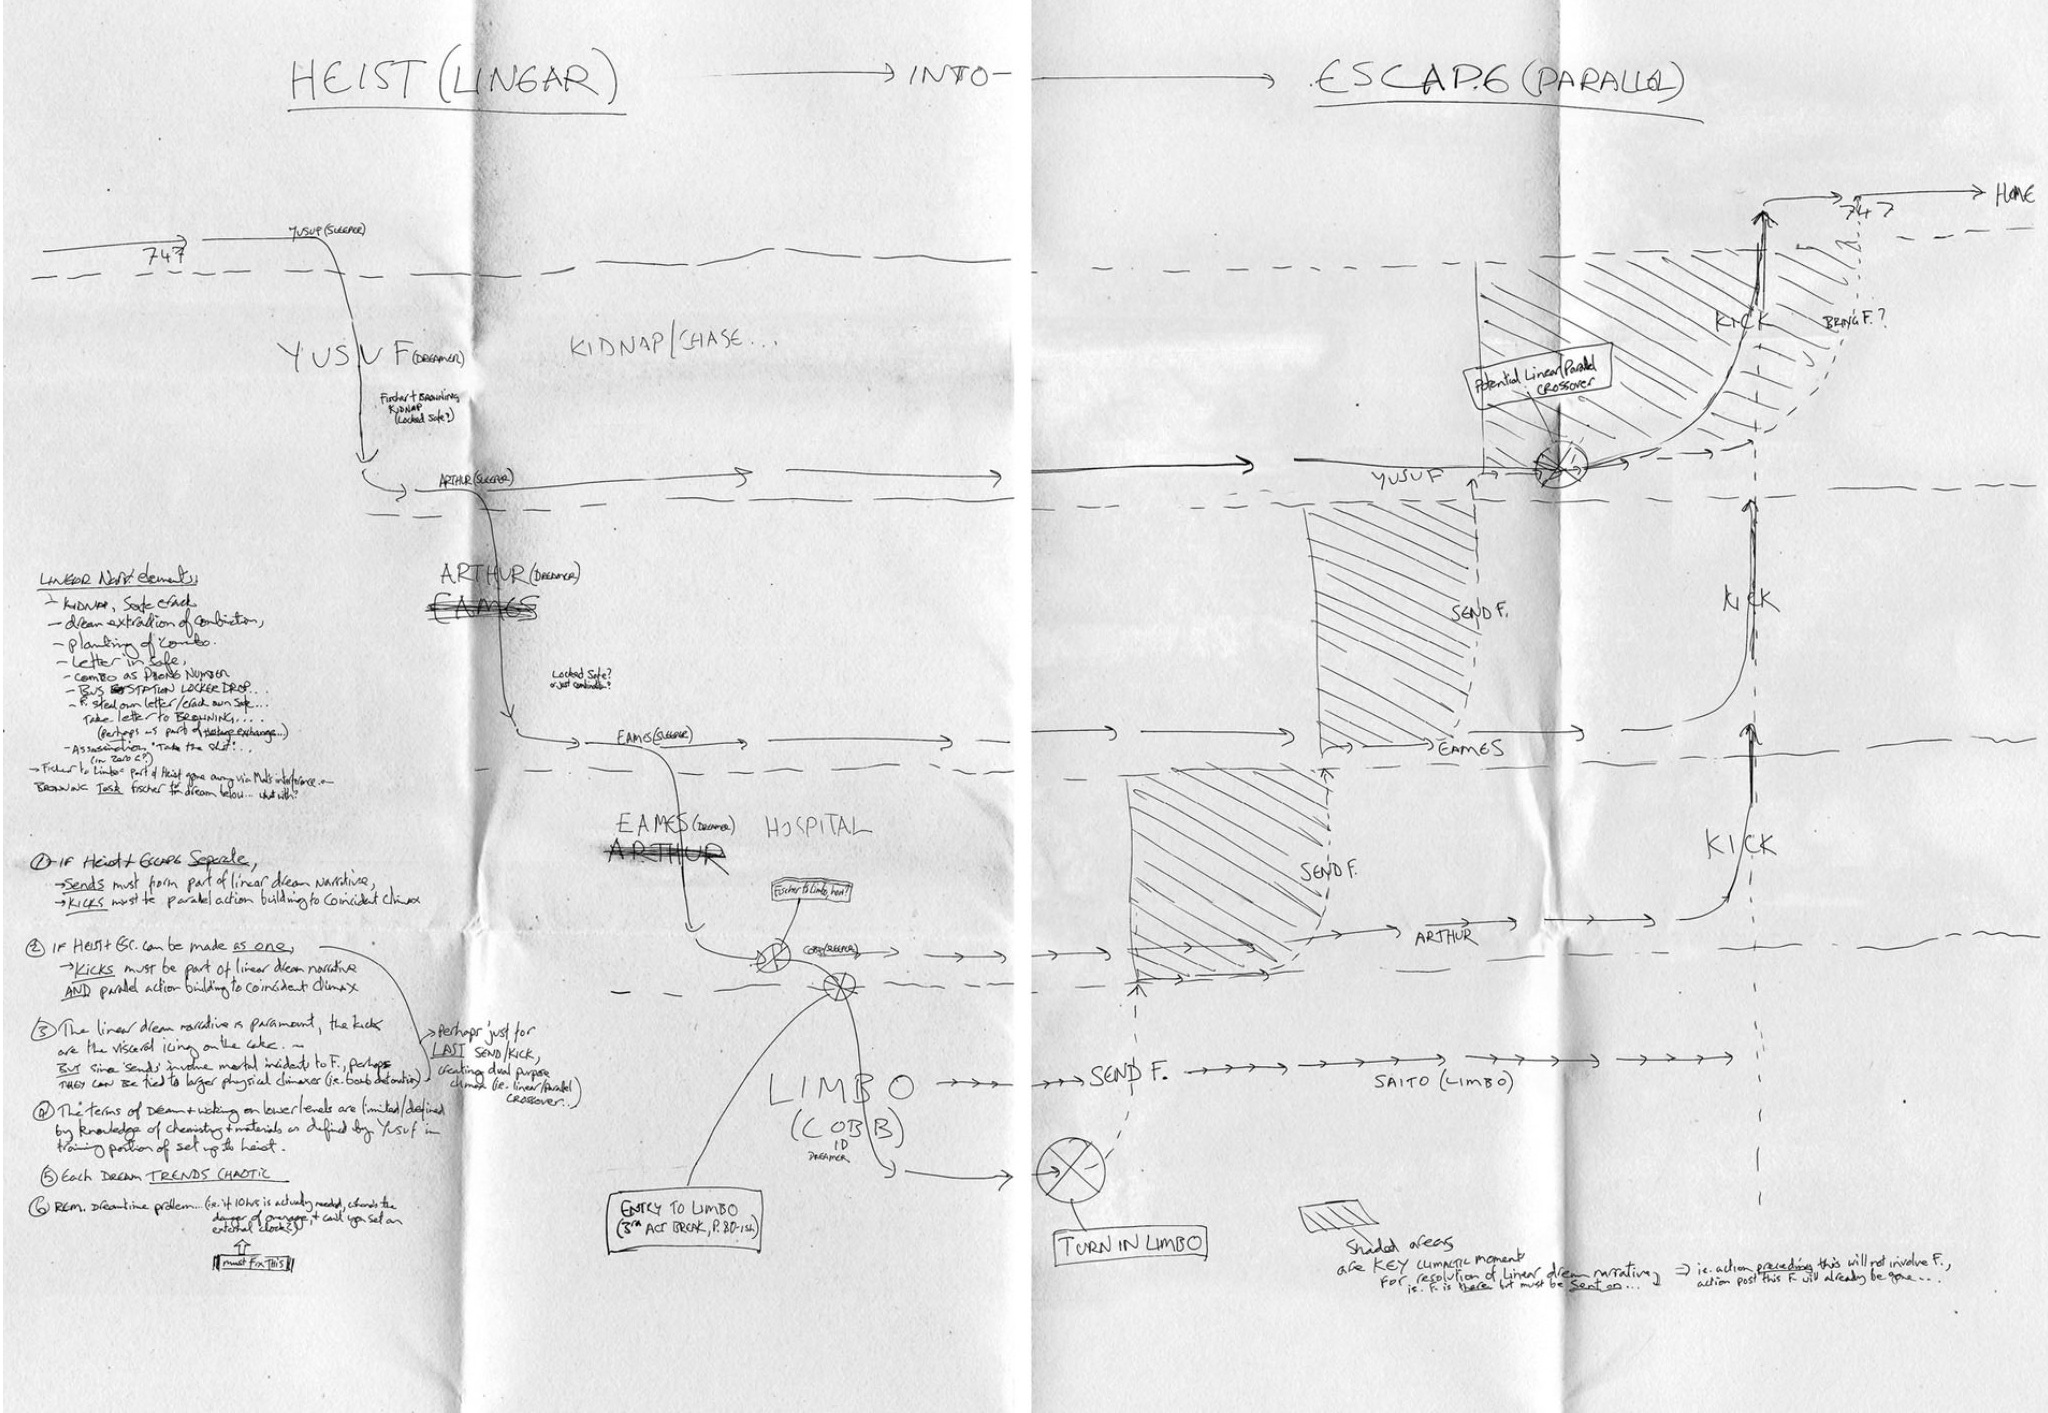 HEIST (LINEAR)
→ INTO —
→ ESCAPE (PARALLEL)
747
YUSUF (SLEEPER)
747
HOME
YUSUF (DREAMER)
KIDNAP/CHASE...
KICK
BRING F.?
Fischer + BROWNING
KIDNAP
(Locked Safe?)
Potential Linear/Parallel
CROSSOVER
ARTHUR (SLEEPER)
YUSUF
ARTHUR (DREAMER)
EAMES
SEND F.
KICK
LINEAR Narr. elements;
- KIDNAP, Safe crack
- dream extraction of combination,
- planting of combo.
- Letter in safe,
- COMBO as PHONE NUMBER
- BUS STATION LOCKER DROP...
- F. steal own letter/crack own safe...
Take letter to BROWNING....
(perhaps as part of hostage exchange...)
- Assassination 'Take the shot'...
(in zero G?)
→ Fischer to Limbo = part of Heist gone awry via Mal's interference...
BROWNING Task Fischer in dream below... what with?
Locked Safe?
or just combination?
EAMES (SLEEPER)
EAMES
EAMES (DREAMER) HOSPITAL
ARTHUR
KICK
SEND F.
Fischer to Limbo, here?
COBB (SLEEPER)
ARTHUR
① IF Heist + ESCAPE Separate,
→ Sends must form part of linear dream narrative,
→ KICKS must be parallel action building to coincident climax
② IF HEIST + ESC. can be made as one,
→ KICKS must be part of linear dream narrative
AND parallel action building to coincident climax
③ The linear dream narrative is paramount, the kicks
are the visceral icing on the cake. —
BUT since 'sends' involve mortal incidents to F., perhaps
THEY CAN BE tied to larger physical climaxes (ie. bomb detonation)
→ Perhaps just for
LAST SEND/KICK,
creating dual purpose
climax (ie. linear/parallel
CROSSOVER...)
④ The terms of Dream + waking on lower levels are limited/defined
by knowledge of chemistry + materials as defined by YUSUF in
training portion of set up to heist.
⑤ Each DREAM TRENDS CHAOTIC
⑥ REM. Dreamtime problem... (ie. if 10 hrs is actually needed, where's the
danger of overage, + can't you set an
external clock?)
must FIX THIS
LIMBO
(COBB)
DREAMER
SEND F.
SAITO (LIMBO)
ENTRY TO LIMBO
(3RD ACT BREAK, P. 80-ish)
TURN IN LIMBO
Shaded areas
are KEY CLIMACTIC moment
FOR resolution of linear dream narrative,
ie. F. is there but must be sent on...
⇒ ie. action preceding this will not involve F.,
action post this F. will already be gone....